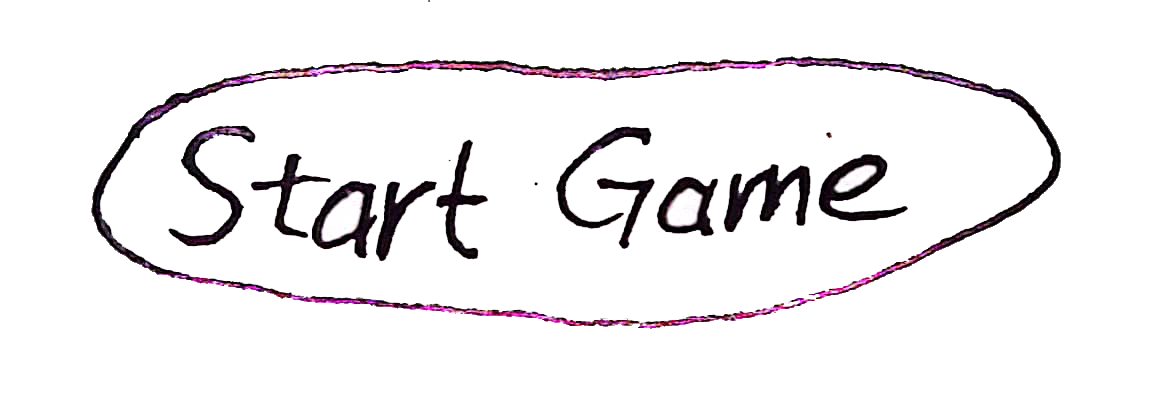 Start Game